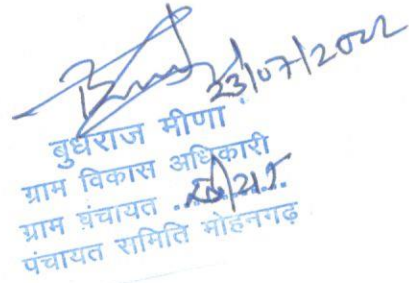 23/07/2022
बुधराज मीणा
ग्राम विकास अधिकारी
ग्राम पंचायत ..........
पंचायत समिति मोहनगढ़